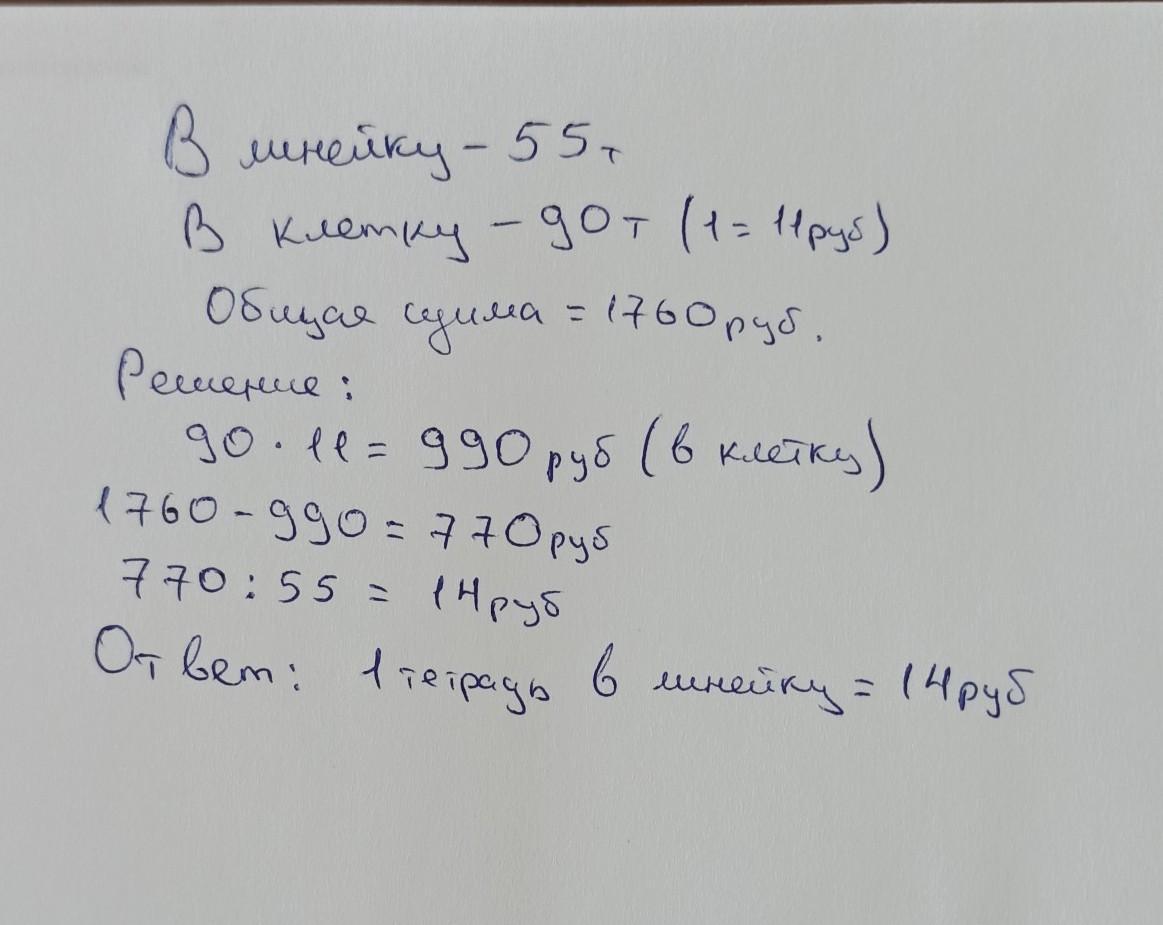 В линейку - 55 т
В клетку - 90 т (1 = 11 руб)
Общая сумма = 1760 руб.
Решение:
90 · 11 = 990 руб (в клетку)
1760 - 990 = 770 руб
770 : 55 = 14 руб
Ответ: 1 тетрадь в линейку = 14 руб